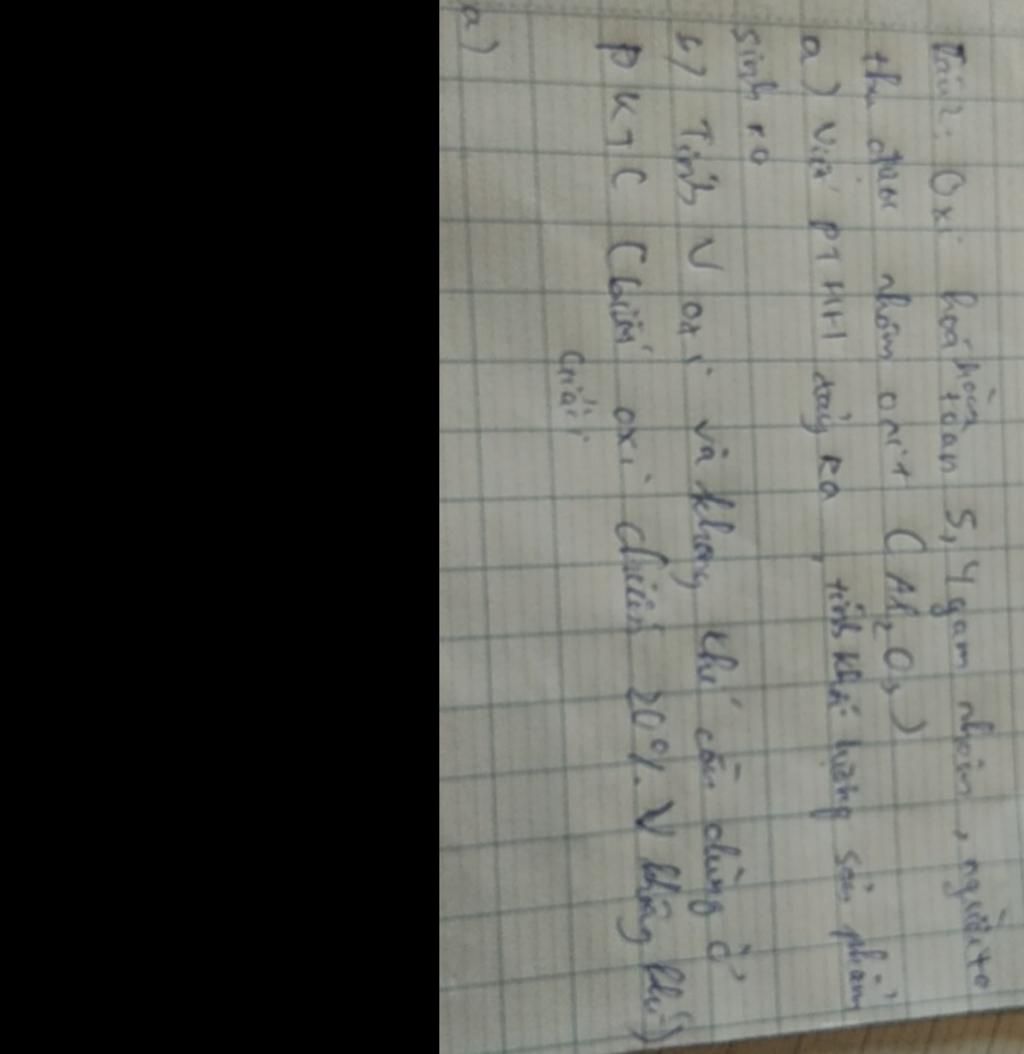 Bài 2: Oxi hoá hoàn toàn 5,4 gam nhôm, người ta
thu được nhôm oxit (Al2O3)
a) Viết PTHH xảy ra, tính khối lượng sản phẩm
sinh ra
b) Tính V oxi và không khí cần dùng ở
ĐKTC (biết oxi chiếm 20% V không khí)
Giải
a)